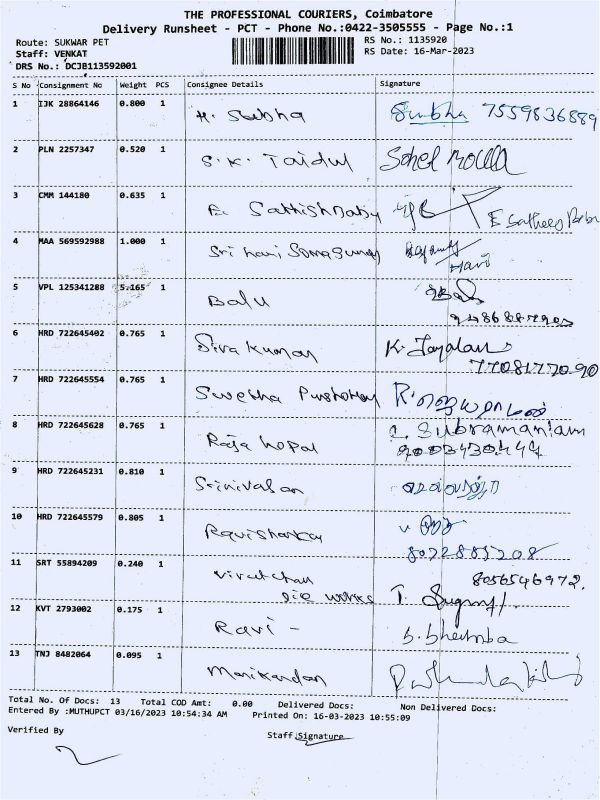 THE PROFESSIONAL COURIERS, Coimbatore
Delivery Runsheet - PCT - Phone No.:0422-3505555 - Page No.:1
Route: SUKWAR PET RS No.: 1135920
Staff: VENKAT RS Date: 16-Mar-2023
DRS No.: DCJB113592001
S No Consignment No Weight PCS Consignee Details Signature
1 IJK 28864146 0.800 1 H. Subha Subha 7559836889
2 PLN 2257347 0.520 1 S.K. Taidul Sohel Molla
3 CMM 144180 0.635 1 E. Sathish Babu E Satheesh Babu
4 MAA 569592988 1.000 1 Sri hari Somasundar Hari
5 VPL 125341288 5.165 1 Balu
6 HRD 722645402 0.765 1 Siva Kumar K. Jayalan
7708177090
7 HRD 722645554 0.765 1 Swetha
8 HRD 722645628 0.765 1 Raja Gopal Subramaniam
9 HRD 722645231 0.810 1 Srinivasan
10 HRD 722645579 0.805 1 Ravishankar
11 SRT 55894209 0.240 1 8056546972.
works
12 KVT 2793002 0.175 1 Ravi -
13 TNJ 8482064 0.095 1 Manikandan
Total No. Of Docs: 13 Total COD Amt: 0.00 Delivered Docs: Non Delivered Docs:
Entered By :MUTHUPCT 03/16/2023 10:54:34 AM Printed On: 16-03-2023 10:55:09
Verified By Staff Signature